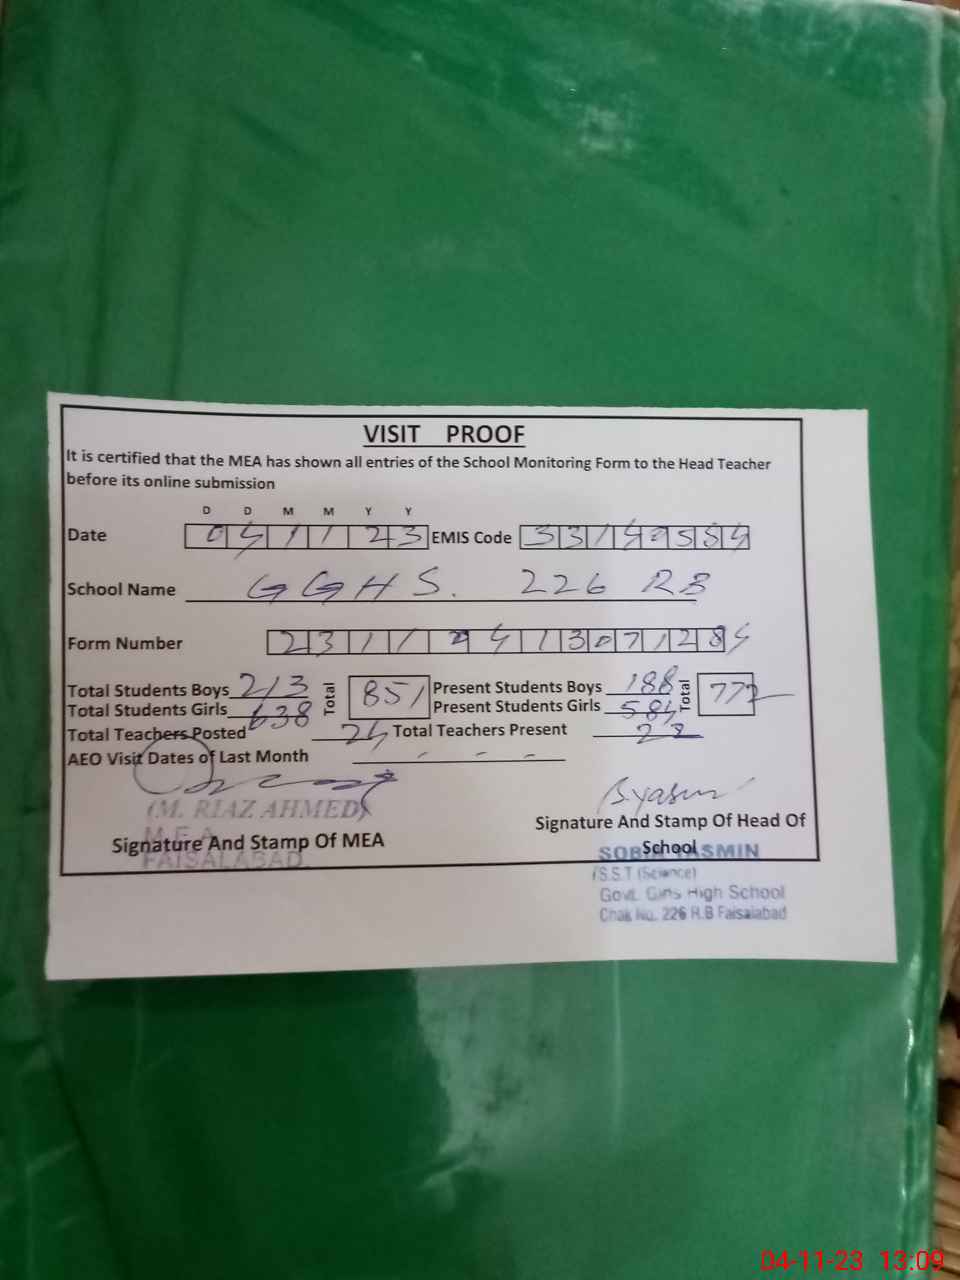 VISIT PROOF
It is certified that the MEA has shown all entries of the School Monitoring Form to the Head Teacher
before its online submission
D D M M Y Y
Date 04 11 23 EMIS Code 33140584
School Name GGHS. 226 RB
Form Number
Total Students Boys 213 Total 851 Present Students Boys 188 Total 772
Total Students Girls 638 Present Students Girls 584
Total Teachers Posted 24 Total Teachers Present 22
AEO Visit Dates of Last Month - - -
(M. RIAZ AHMED) S.yasmin
Signature And Stamp Of MEA Signature And Stamp Of Head Of
M.E.A School
FAISALABAD. SOBIA YASMIN
(S.S.T (Science)
Govt. Girls High School
Chak No. 226 R.B Faisalabad
04-11-23 13:09